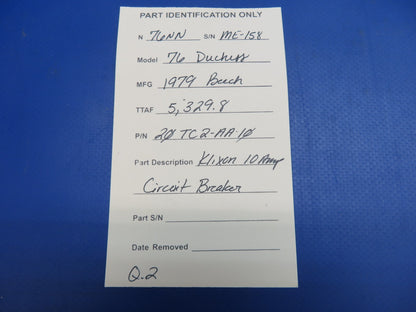 PART IDENTIFICATION ONLY
N 76NN S/N ME-158
Model 76 Duchess
MFG 1979 Beech
TTAF 5,329.8
P/N 20TC2-AA-10
Part Description Klixon 10 Amp
Circuit Breaker
Part S/N
Date Removed
Q.2